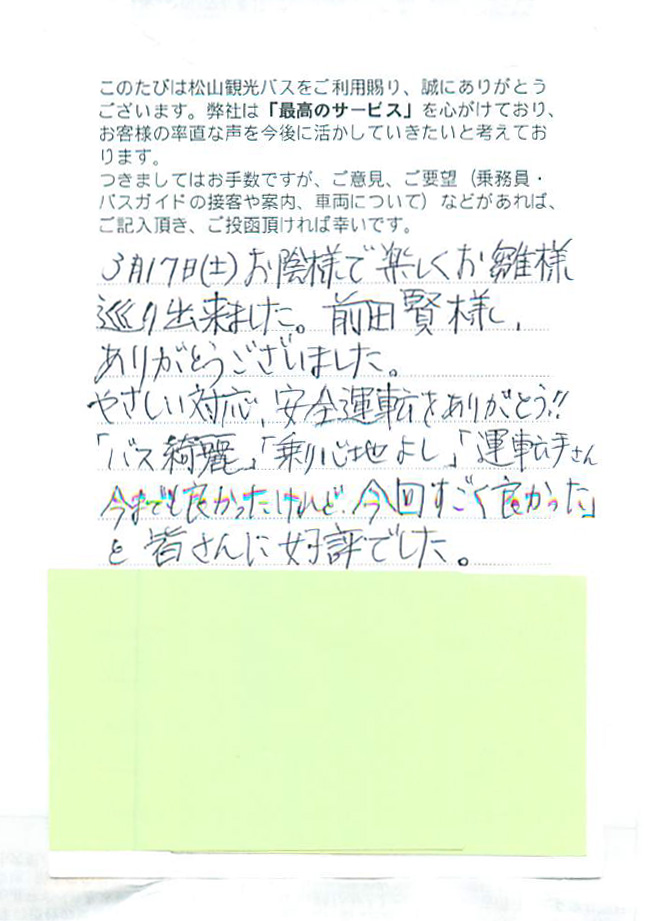 このたびは松山観光バスをご利用賜り、誠にありがとう
ございます。弊社は「最高のサービス」を心がけており、
お客様の率直な声を今後に活かしていきたいと考えてお
ります。
つきましてはお手数ですが、ご意見、ご要望（乗務員・
バスガイドの接客や案内、車両について）などがあれば、
ご記入頂き、ご投函頂ければ幸いです。
3月17日(土)お陰様で楽しくお雛様
巡り出来ました。前田賢様、
ありがとうございました。
やさしい対応、安全運転をありがとう!!
「バス綺麗」「乗り心地よし」「運転手さん
今までも良かったけれど、今回すごく良かった」
と皆さんに好評でした。